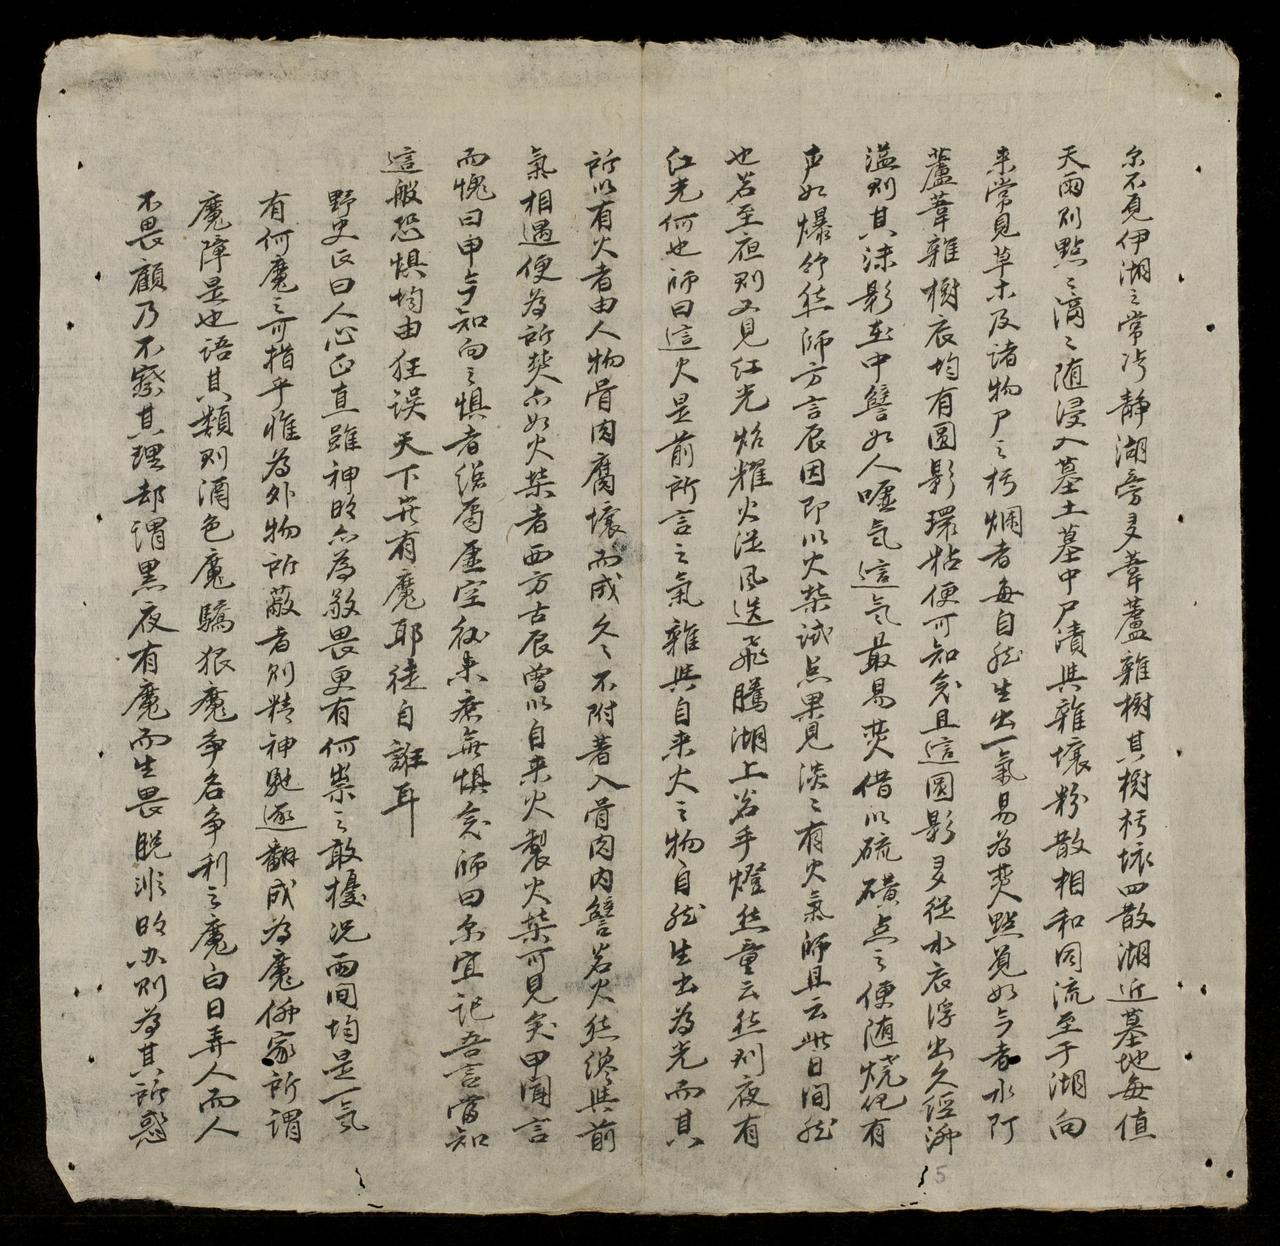 尔不見伊湖之常污静湖旁多葦蘆雜樹其樹朽壞四散湖近墓地每值
天雨則點〻滴〻随浸入墓土墓中尸漬與雜壤粉散相和同流至于湖向
来常見草木及諸物尸之朽爛者每自然生出一氣易為焚點覓如今煮水阿
蘆葦雜樹衣均有圓影環粘便可知矣且這圓影多從水衣浮出久經沸
溢則其沫影在中譬如人噓气這气最易焚借以硫磺点之便随燒化有
声如爆竹然師方言辰因即以火柴試点果見淡〻有火氣師且云此日間然
也若至夜則又見红光焰耀火逆風送飛騰湖上若手燈然童云然則夜有
红光何也師曰這火是前所言之氣雜與自来火之物自然生出為光而其
所以有火者由人物骨肉腐壞而成久〻不附著入骨肉内譬若火然纔與前
氣相遇便為所焚亦如火柴者西方古辰曾以自来火製火柴可見矣甲聞言
而愧曰申今知向之惧者總屬虚空從来庶無惧矣師曰尔宜記吾言當知
這般恐惧均由狂误天下豈有魔耶徒自誑耳
野史氏曰人心正直雖神明亦為敬畏更有何祟之敢擾况两间均是一気
有何魔之可指乎惟為外物所蔽者則精神馳逐翻成為魔佛家所謂
魔障是也語其類則酒色魔驕狠魔争名争利之魔白日弄人而人
不畏顧乃不察其理却謂黑夜有魔而生畏脱非明办則為其所惑
5